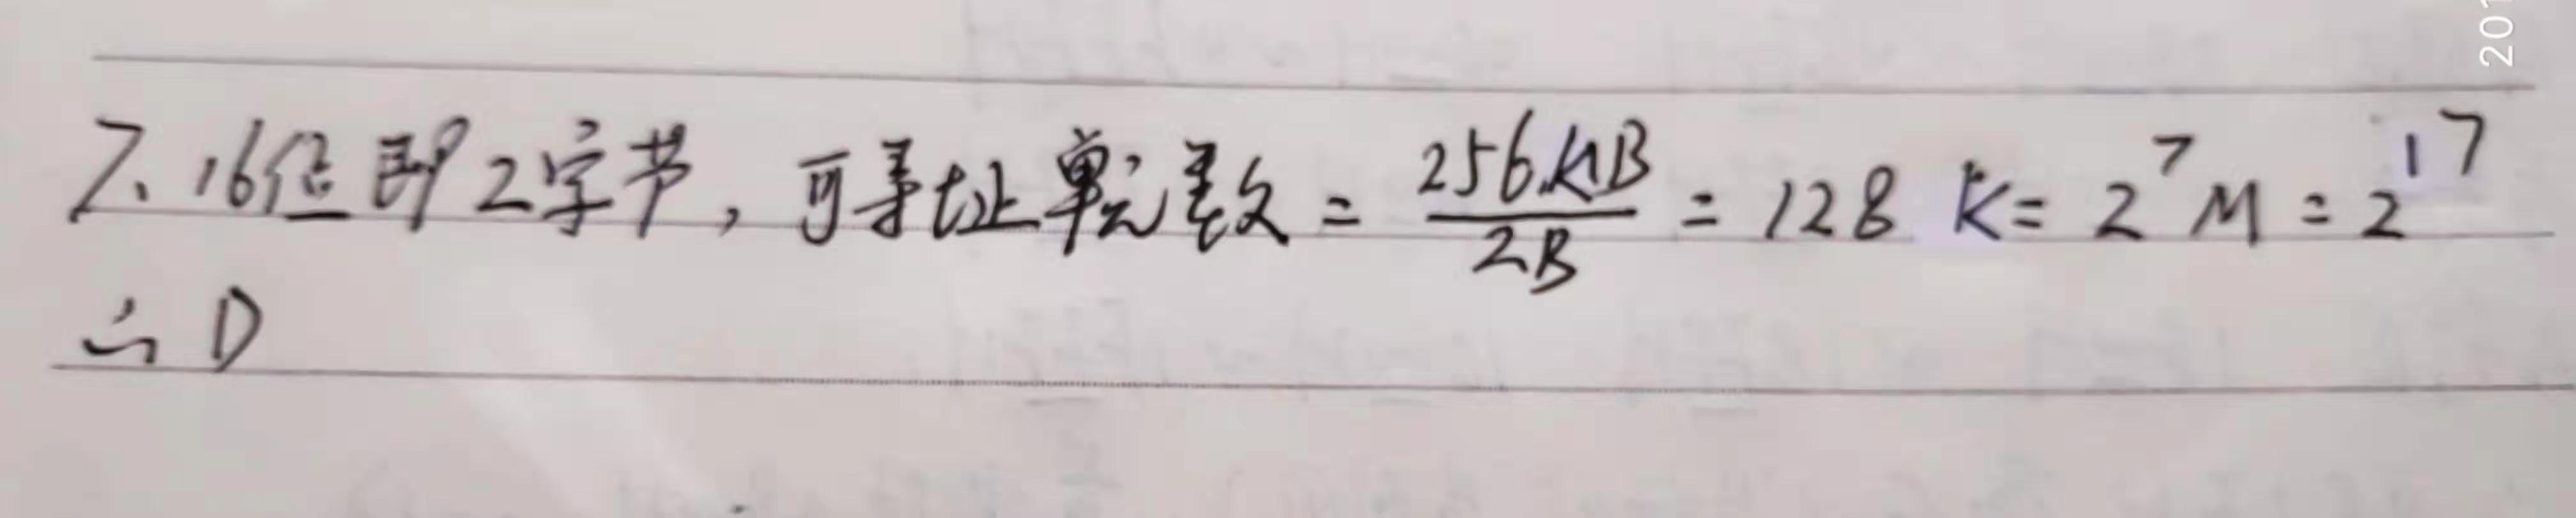 7. 16位即2字节，可寻址单元数 = 256KB/2B = 128 K = 2⁷M = 2¹⁷
∴ D
201